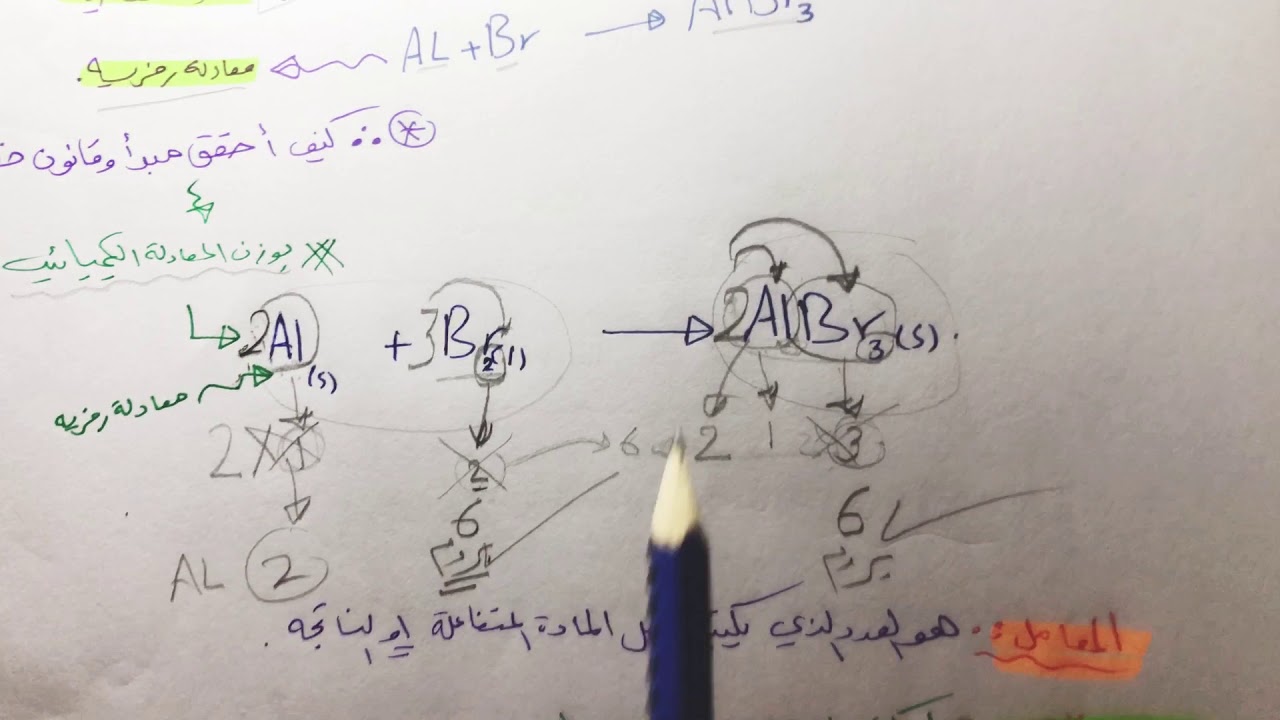 AL + Br → AlBr3
معادلة رمزيه.
* .. كيف أحقق مبدأ وقانون
بوزن المعادلة الكيميائيه
2Al (s) + 3Br2 (l) → 2AlBr3 (s).
معادلة رمزيه
2 X 1 2 6 2 1 2 X 3
AL 2 6 6
بروم بروم
المعامل: هو العدد الذي المادة المتفاعلة او الناتجه.